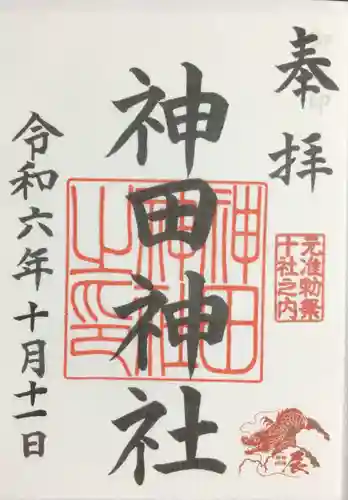 奉拝
元准勅祭
十社之内
神田神社
神田
神社
之印
令和六年十月十一日
辰